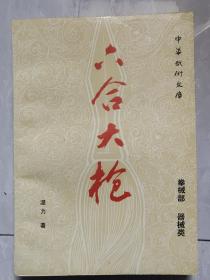 中华武术文库
六合大枪
拳械部 器械类
温力 著